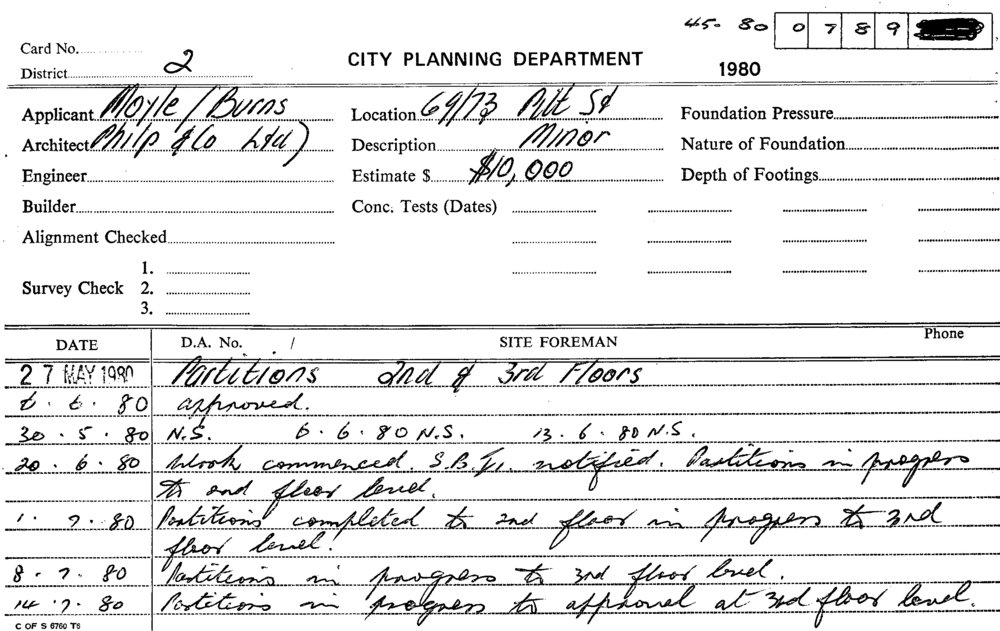 45- 80 0 7 8 9
Card No.
District 2
CITY PLANNING DEPARTMENT
1980
Applicant Moyle / Burns
Location 69/73 Pitt St
Foundation Pressure
Architect Philp & Co Ltd)
Description Minor
Nature of Foundation
Engineer
Estimate $ $10,000
Depth of Footings
Builder
Conc. Tests (Dates)
Alignment Checked
1.
Survey Check 2.
3.
DATE D.A. No. / SITE FOREMAN Phone
27 MAY 1980 Partitions 2nd & 3rd Floors
6 . 6 . 80 approved.
30 . 5 . 80 N.S. 6 . 6 . 80 N.S. 13 . 6 . 80 N.S.
20 . 6 . 80 Work commenced. notified. Partitions in progress
to 2nd floor level.
1 . 7 . 80 Partitions completed to 2nd floor in progress to 3rd
floor level.
8 . 7 . 80 Partitions in progress to 3rd floor level.
14 . 7 . 80 Partitions in progress to approval at 3rd floor level.
C OF S 6760 T6